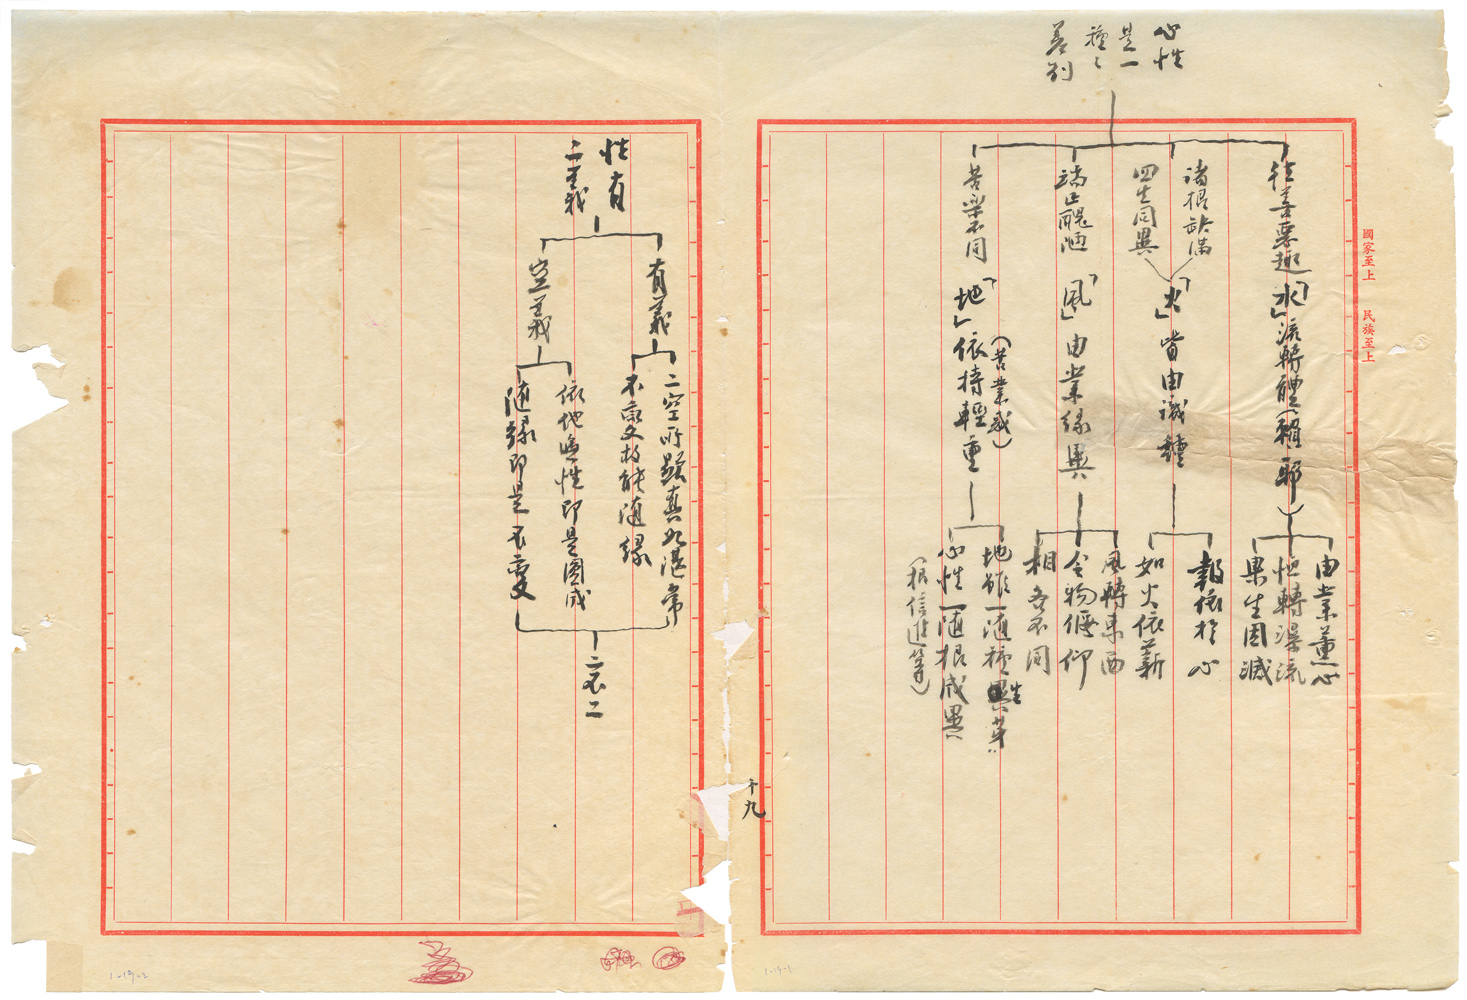 心性
是一
種々
差別
往善惡趣
「水」
流轉體(賴耶)
由業薰心
恒轉瀑流
果生因滅
諸根缺滿
四生同異
「火」
皆由識種
報依於心
如火依薪
端正醜陋
「風」
由業緣異
風轉東西
令物偃仰
相各不同
苦樂不同
「地」
(苦業感)
依持輕重
地雖一隨種生異芽
心性一隨根成異
(根信進等)
國家至上 民族至上
十九
性有
二義
有義
二空所顯真如湛常
不變故能隨緣
空義
依他無性即是圓成
隨緣即是不變
二不二
1-19-2
1-19-1